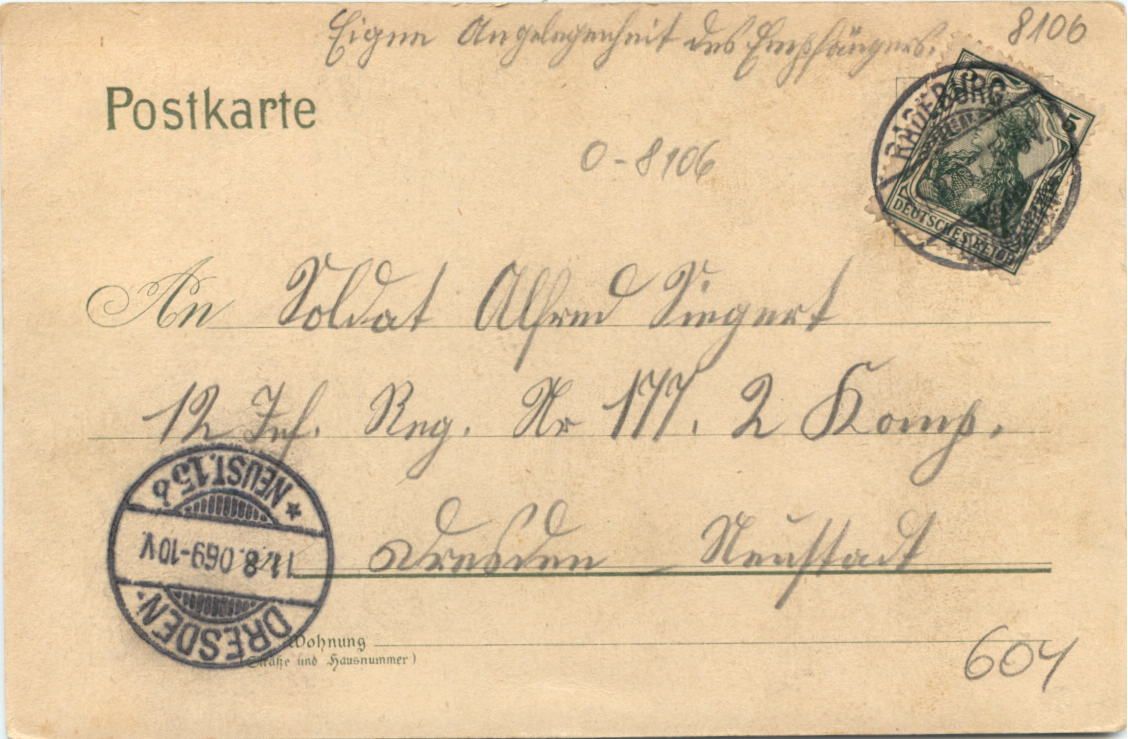 Eigene Angelegenheit des Empfängers.
8106
Postkarte
0-8106
RADEBURG
5
DEUTSCHES REICH
An Soldat Alfred Siegert
12 Inf. Reg. Nr 177. 2 Komp.
Dresden Neustadt
DRESDEN-
11.8.06 9-10V
* NEUST. 15 b
Wohnung
(Straße und Hausnummer)
604